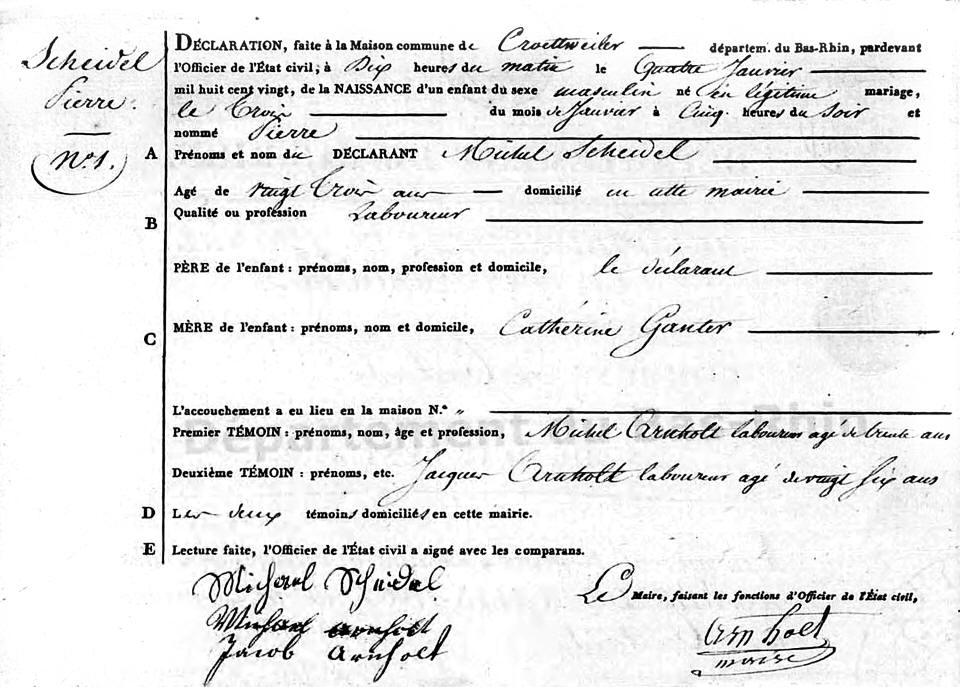 Scheidel
Pierre.
N.º 1.
DÉCLARATION, faite à la Maison commune de Croettweiler départem. du Bas-Rhin, pardevant
l'Officier de l'État civil, à Dix heures du matin le Quatre Janvier
mil huit cent vingt, de la NAISSANCE d'un enfant du sexe masculin né en légitime mariage,
le Trois du mois de Janvier à Cinq heures du soir et
nommé Pierre
A Prénoms et nom du DÉCLARANT Michel Scheidel
Agé de vingt Trois ans domicilié en cette mairie
B Qualité ou profession Laboureur
PÈRE de l'enfant : prénoms, nom, profession et domicile, le déclarant
C MÈRE de l'enfant : prénoms, nom et domicile, Catherine Ganter
L'accouchement a eu lieu en la maison N.º "
Département du Bas-Rhin
Premier TÉMOIN : prénoms, nom, âge et profession, Michel Arnholt laboureur agé de trente ans
Deuxième TÉMOIN : prénoms, etc. Jacques Arnholt laboureur agé de vingt six ans
D Les deux témoins domiciliés en cette mairie.
E Lecture faite, l'Officier de l'État civil a signé avec les comparans.
Michael Scheidel
Le Maire, faisant les fonctions d'Officier de l'État civil,
Michael Arnholt
Jacob Arnholt
Arnholt
maire